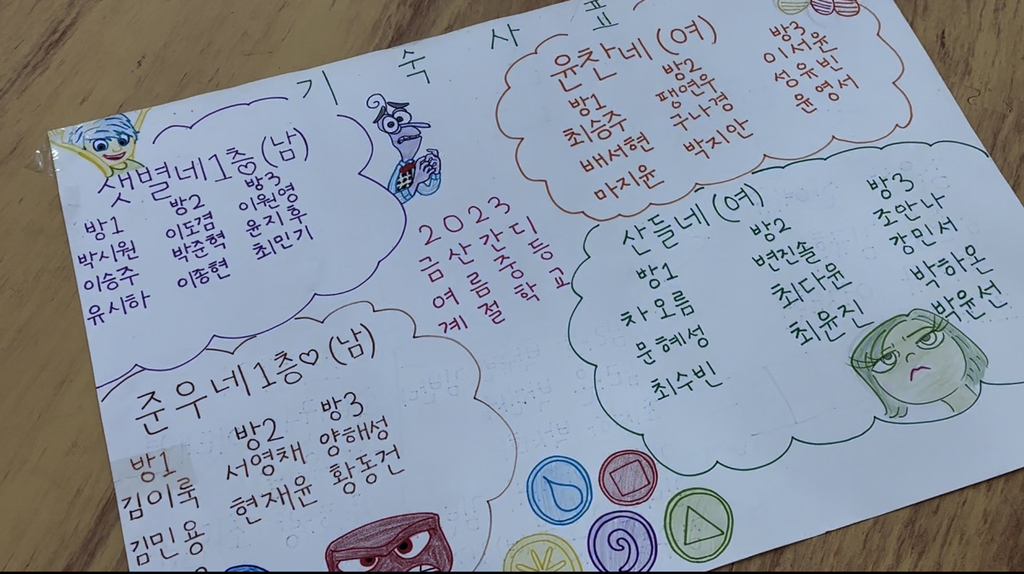 기숙사표
샛별네 1층 (남)
방1
박시원
이승주
유시하
방2
이도겸
박준혁
이종현
방3
이원영
윤지후
최민기
윤찬네 (여)
방1
최승주
배서현
마지윤
방2
팽연우
구나경
박지안
방3
이서윤
성유빈
윤영서
2023
금산간디
여름중등
계절학교
준우네 1층♡ (남)
방1
김이룩
김민용
방2
서영채
현재윤
방3
양해성
황동건
산들네 (여)
방1
차오름
문혜성
최수빈
방2
변진솔
최다윤
최윤진
방3
조안나
강민서
박하온
박윤선